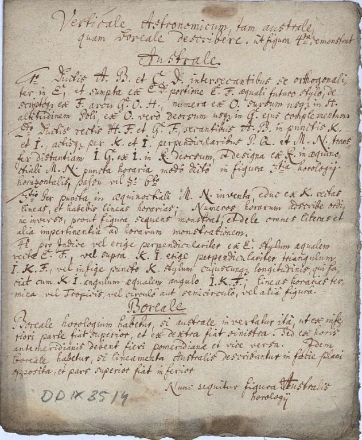 Verticale Astronomicum, tam australe,
quam Boreale describere. Ut figura 4ta demonstrat
Australe
1o Ductis A. B. et C. D. intersecantibus se orthogonali,
ter in E; et sumpta ex E portione E. F. aequali futuro stylo, de
arcu G. O. H, numera ex O. sursum usq in H.
altitudinem Poli, ex O. verò deorsum usq in G. ejus complementum
2o Ductis rectis H. F. et G. F. secantibus A. B. in punctis K.
et I. per K. et I. perpendicularibus P. Q. et M. N. trans,
fer distantiam I. G. ex I. in deorsum, et designa ex in aequino,
ctiali M. N. puncta horaria modo dicto in figura horologij
horizontalis,
3o Per puncta in aequinoctiali M. N. inventa, educ ex K. rectas
lineas, et habebis lineas horarias; Numeros horarum describe ordi,
ne inverso, prout figura sequens monstrat, et dele omnes literas et
alia impertinentia ad horarum monstrationem.
4. pro Indice vel erige perpendiculariter ex E. stylum aequalem
rectae E. F., vel supra K. I. erige perpendiculariter triangulum
I. K. F., vel infige puncto K. stylum cujuscunque longitudinis, qui fa,
ciat cum K. I. angulum aequalem angulo I. K. F.; lineas horarias ter,
mina vel Tropicis, vel circulo aut semicirculo, vel alia figura.
Boreale
Boreale horologium habetur, si australe invertatur ità, ut ex infe
riori parte fiat superior, et ex dextra fiat sinistra. Sed ex horis
antemeridianis debent fieri pomeridianae et vice versa. Idem
Boreale habetur, si lineamenta Australis describuntur in facie plani
opposita, et pars superior fiat inferior
Nunc sequitur figura Australis
horologij
DD IX 8514